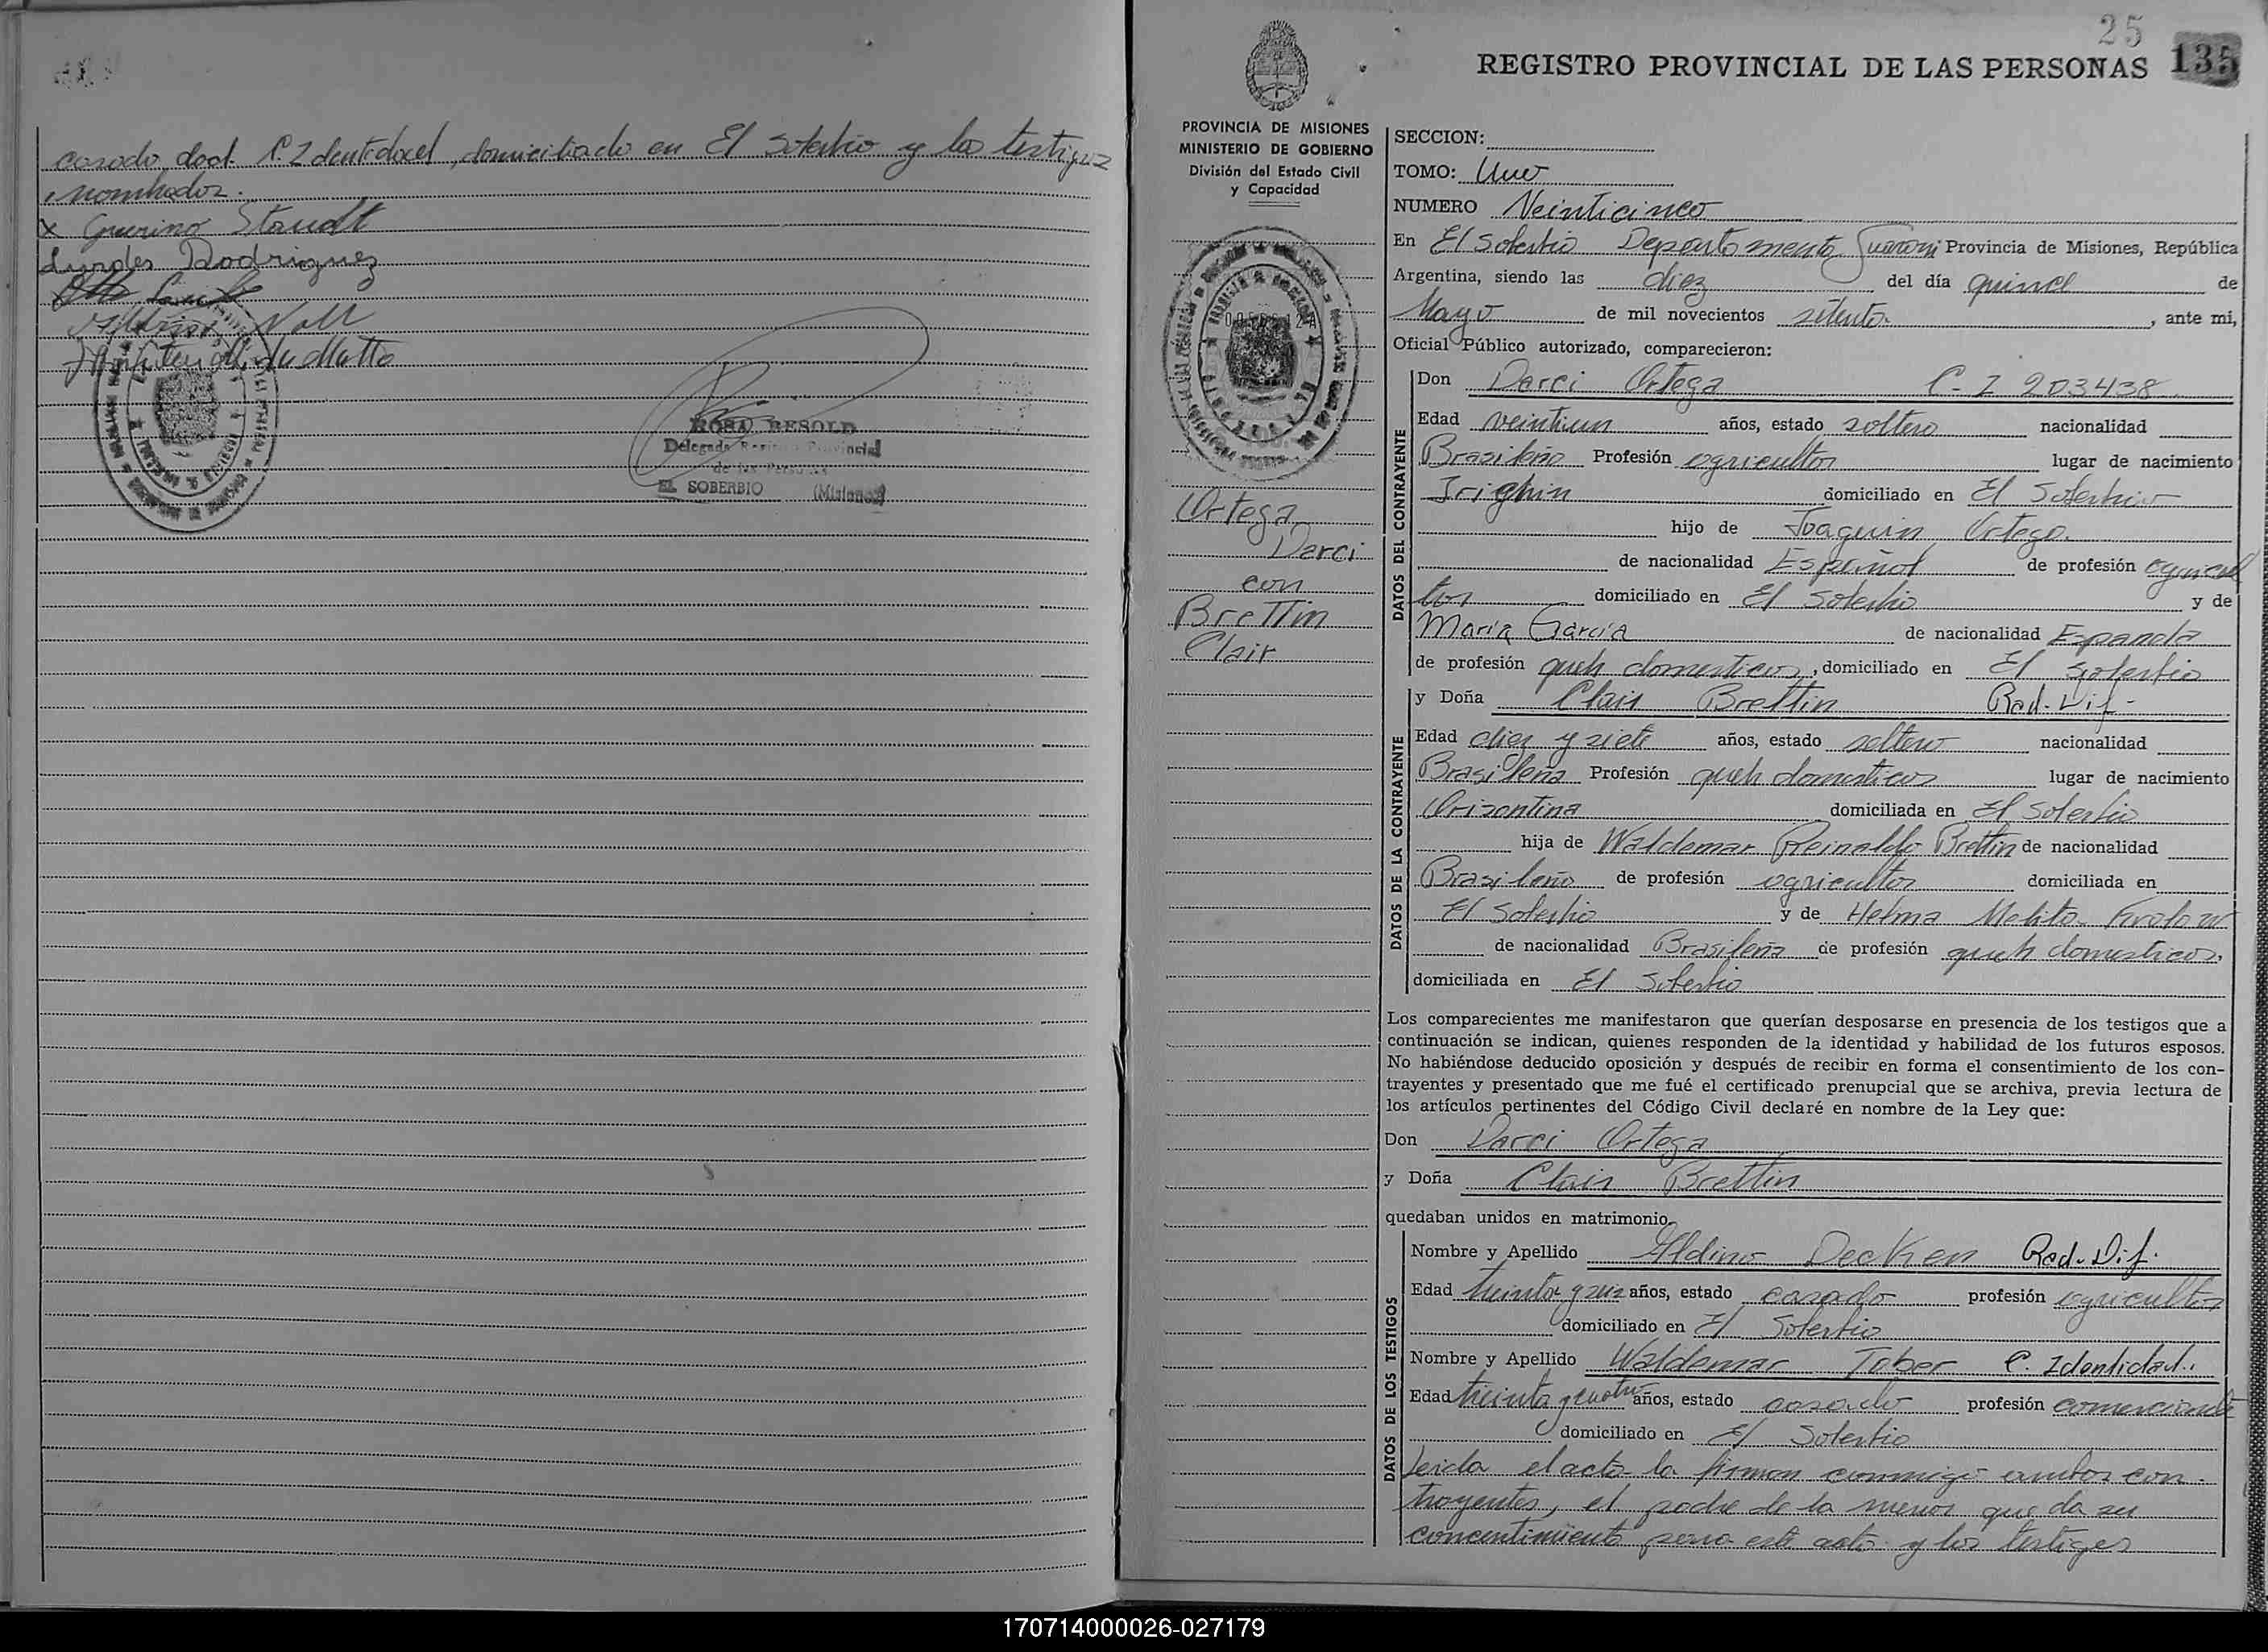 casado doct. C. Identidad, domiciliado en El Soberbio y los testigos
nombrados.
x Guerino Staudt
Lurdes Rodriguez
ROSA RESOLD
Delegada Provincial
de las Personas
EL SOBERBIO (Misiones)
25
REGISTRO PROVINCIAL DE LAS PERSONAS 135
PROVINCIA DE MISIONES
MINISTERIO DE GOBIERNO
División del Estado Civil
y Capacidad
Ortega
Darci
con
Brettin
Clair
SECCION:
TOMO: Uno
NUMERO Veinticinco
En El Soberbio Departamento Guarani Provincia de Misiones, República
Argentina, siendo las diez del día quince de
Mayo de mil novecientos setenta , ante mi,
Oficial Público autorizado, comparecieron:
DATOS DEL CONTRAYENTE
Don Darci Ortega C-I 203438
Edad veintiun años, estado soltero nacionalidad
Brasileño Profesión agricultor lugar de nacimiento
domiciliado en El Soberbio
hijo de Joaquin Ortega
de nacionalidad Español de profesión agricul
tor domiciliado en El Soberbio y de
Maria García de nacionalidad Espanola
de profesión queh domesticos, domiciliado en El Soberbio
DATOS DE LA CONTRAYENTE
y Doña Clair Brettin Rad. Dif-
Edad diez y siete años, estado soltera nacionalidad
Brasileña Profesión queh domesticos lugar de nacimiento
Orizontina domiciliada en El Soberbio
hija de Waldemar Reinaldo Brettin de nacionalidad
Brasileño de profesión agricultor domiciliada en
El Soberbio y de Helma Melita
de nacionalidad Brasileña de profesión queh domesticos,
domiciliada en El Soberbio
Los comparecientes me manifestaron que querían desposarse en presencia de los testigos que a
continuación se indican, quienes responden de la identidad y habilidad de los futuros esposos.
No habiéndose deducido oposición y después de recibir en forma el consentimiento de los con-
trayentes y presentado que me fué el certificado prenupcial que se archiva, previa lectura de
los artículos pertinentes del Código Civil declaré en nombre de la Ley que:
Don Darci Ortega
y Doña Clair Brettin
quedaban unidos en matrimonio.
DATOS DE LOS TESTIGOS
Nombre y Apellido Aldino Decken Rad. Dif.
Edad treinta y seis años, estado casado profesión agricultor
domiciliado en El Soberbio
Nombre y Apellido Waldemar Tober C. Identidad.
Edad treinta y cuatro años, estado casado profesión comerciante
domiciliado en El Soberbio
Leida el acta la firman conmigo ambos con-
trayentes, el padre de la menor que da su
concentimiento para este acto y los testigos
170714000026-027179